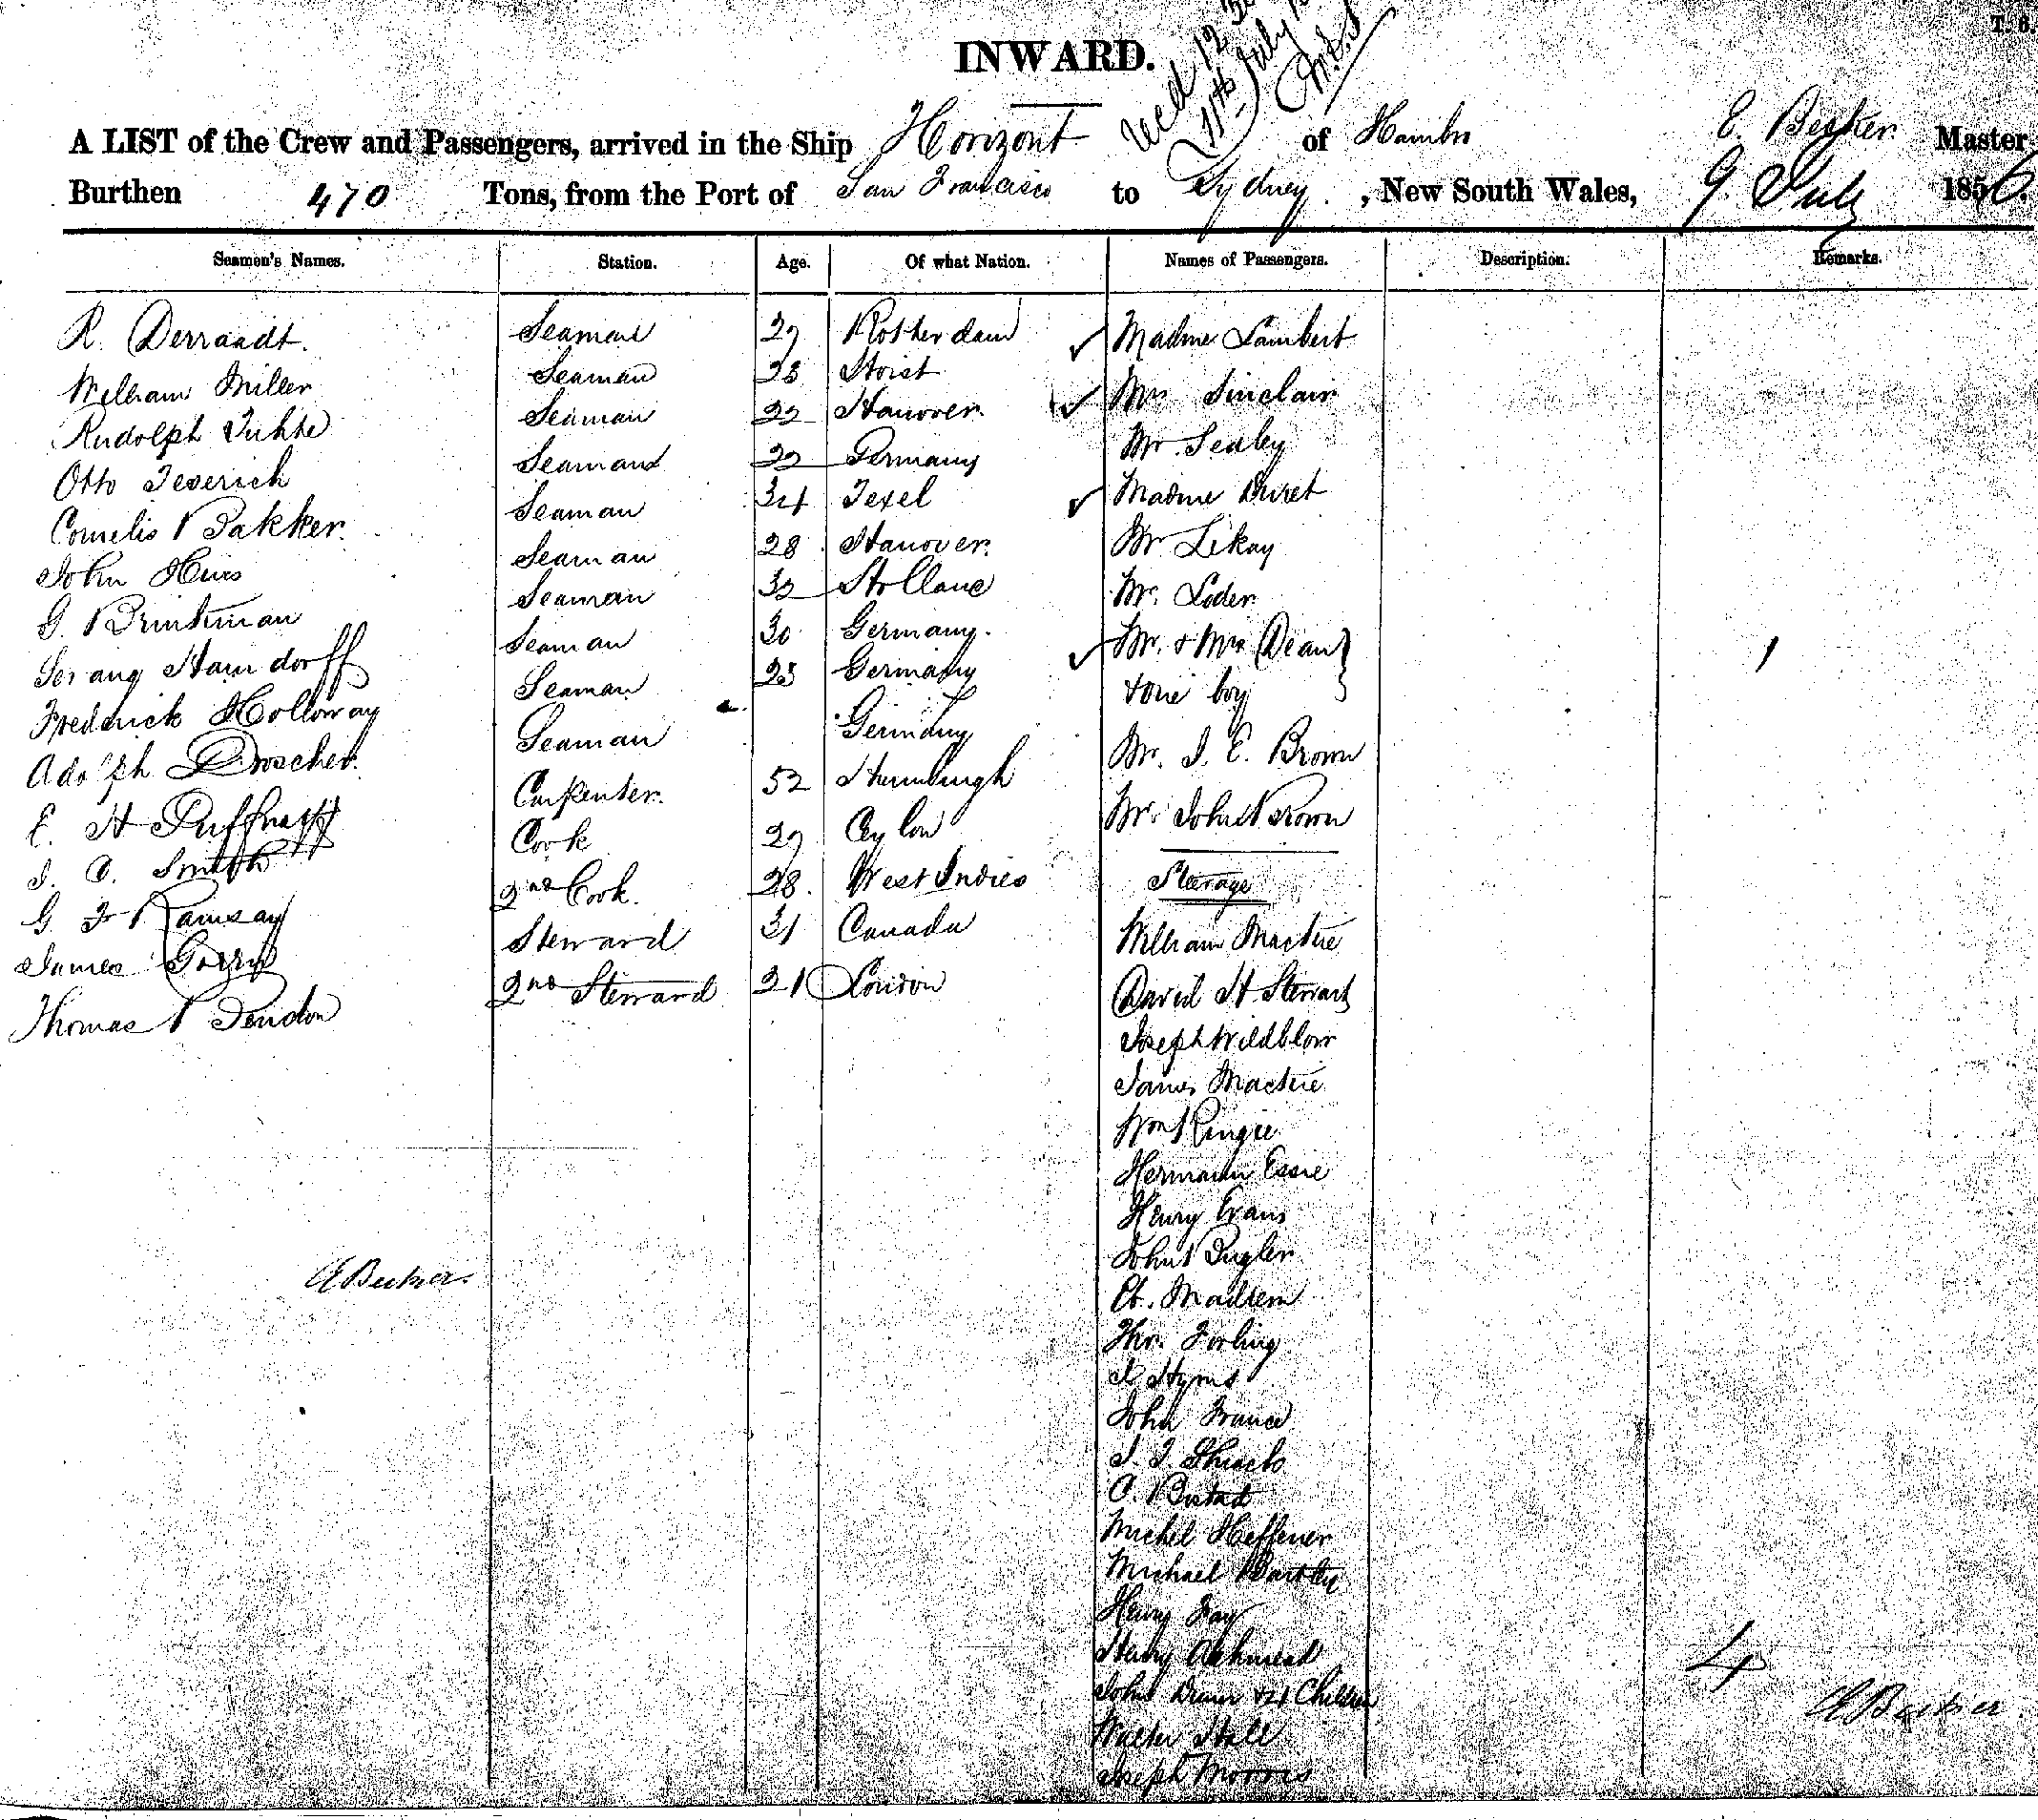 T. 8.
INWARD.
A LIST of the Crew and Passengers, arrived in the Ship Horizont of Hambro E. Becker Master
Burthen 470 Tons, from the Port of San Francisco to Sydney, New South Wales, 9 July 1856.
Seamen's Names. Station. Age. Of what Nation. Names of Passengers. Description. Remarks.
R. Derraadt. Seaman 27 Rotherdam Madme Lambert
William Miller Seaman 28 Mrs Sinclair
Rudolph Seaman 22 Hanover Mr. Sealey
Otto Teverich Seaman 22 Germany Madme Duret
Cornelis Bakker. Seaman 34 Texel Mr Likay
John Seaman 28 Hanover. Mr. Loder
G. Brinkman Seaman 32 Hollane Mr. & Mrs Dean
Hamdorff Seaman 30 Germany. & one boy
Frederick Holloway Seaman 23 Germany Mr. J. E. Brown
Adolph Droscher Seaman Germany Mr. John Brown
E. H Carpenter. 52 Steerage
J. C. Smith Cook 27 Ceylon William Mactire
G. Fr Ramsay 2nd Cook. 28. West Indies David H. Stewart
James Gorry Steward 31 Canada Joseph Wildblow
Thomas Dendon 2nd Steward 21 London James Mactire
Wm Ringie
Hermann Essie
Henry Evans
John Bugler
Madsem
Thos. Forling
Hyms
John France
J. T.
C.
Michel Heffener
Michael Bartley
Henry Fay
Henry Ashmead
John & 4 Children
Walter Hall
Joseph Morris
E Becker
4
E Becker